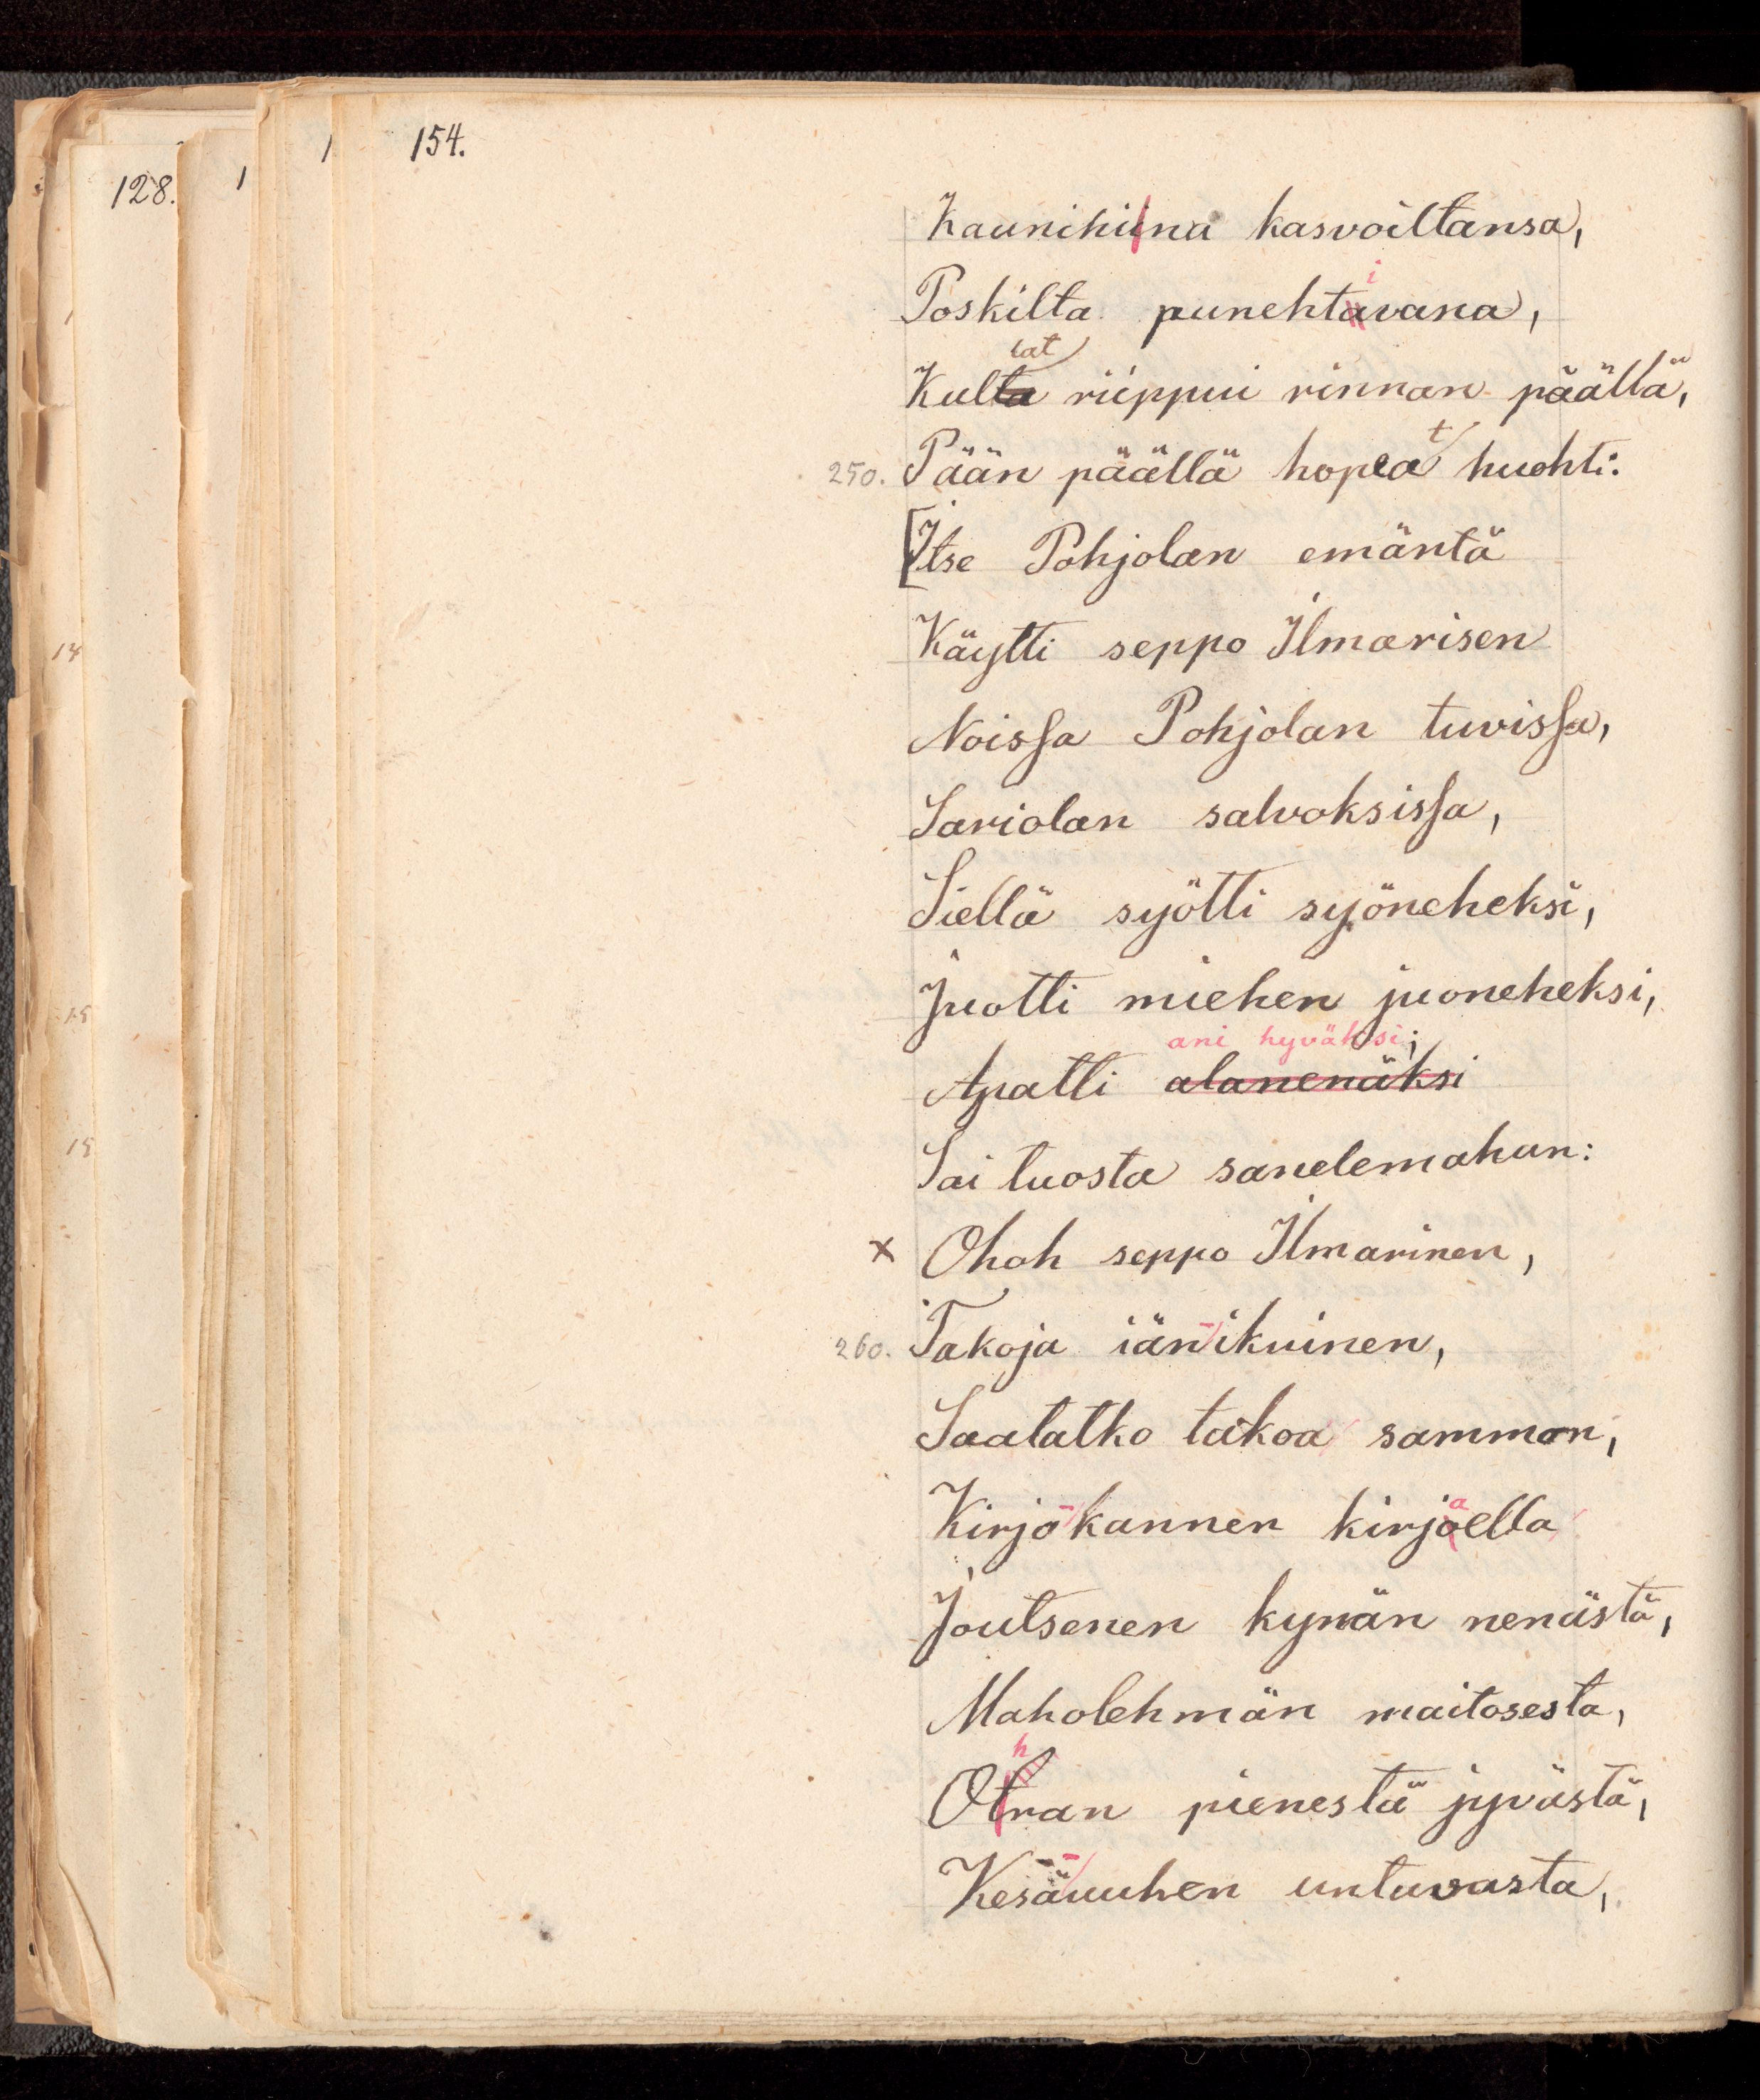 154.
128.
Kaunihiina kasvoiltansa,
i
Poskilta punehtavana,
lat
Kulta riippui rinnan päällä,
t
250. Pään päällä hopea huohti:
[Itse Pohjolan emäntä
Käytti seppo Ilmarisen
Noissa Pohjolan tuvissa,
Sariolan salvoksissa,
Siellä syötti syöneheksi,
Juotti miehen juoneheksi,
ani hyväksi;
Apatti alanenäksi
Sai tuosta sanelemahan:
x Ohoh seppo Ilmarinen,
260. Takoja iän-ikuinen,
Saatatko takoa sammon,
a
Kirjo-kannen kirjoella
Joutsenen kynän nenästä,
Maholehmän maitosesta,
h
Otran pienestä jyvästä,
Kesä-uuhen untuvasta,
14
15
15